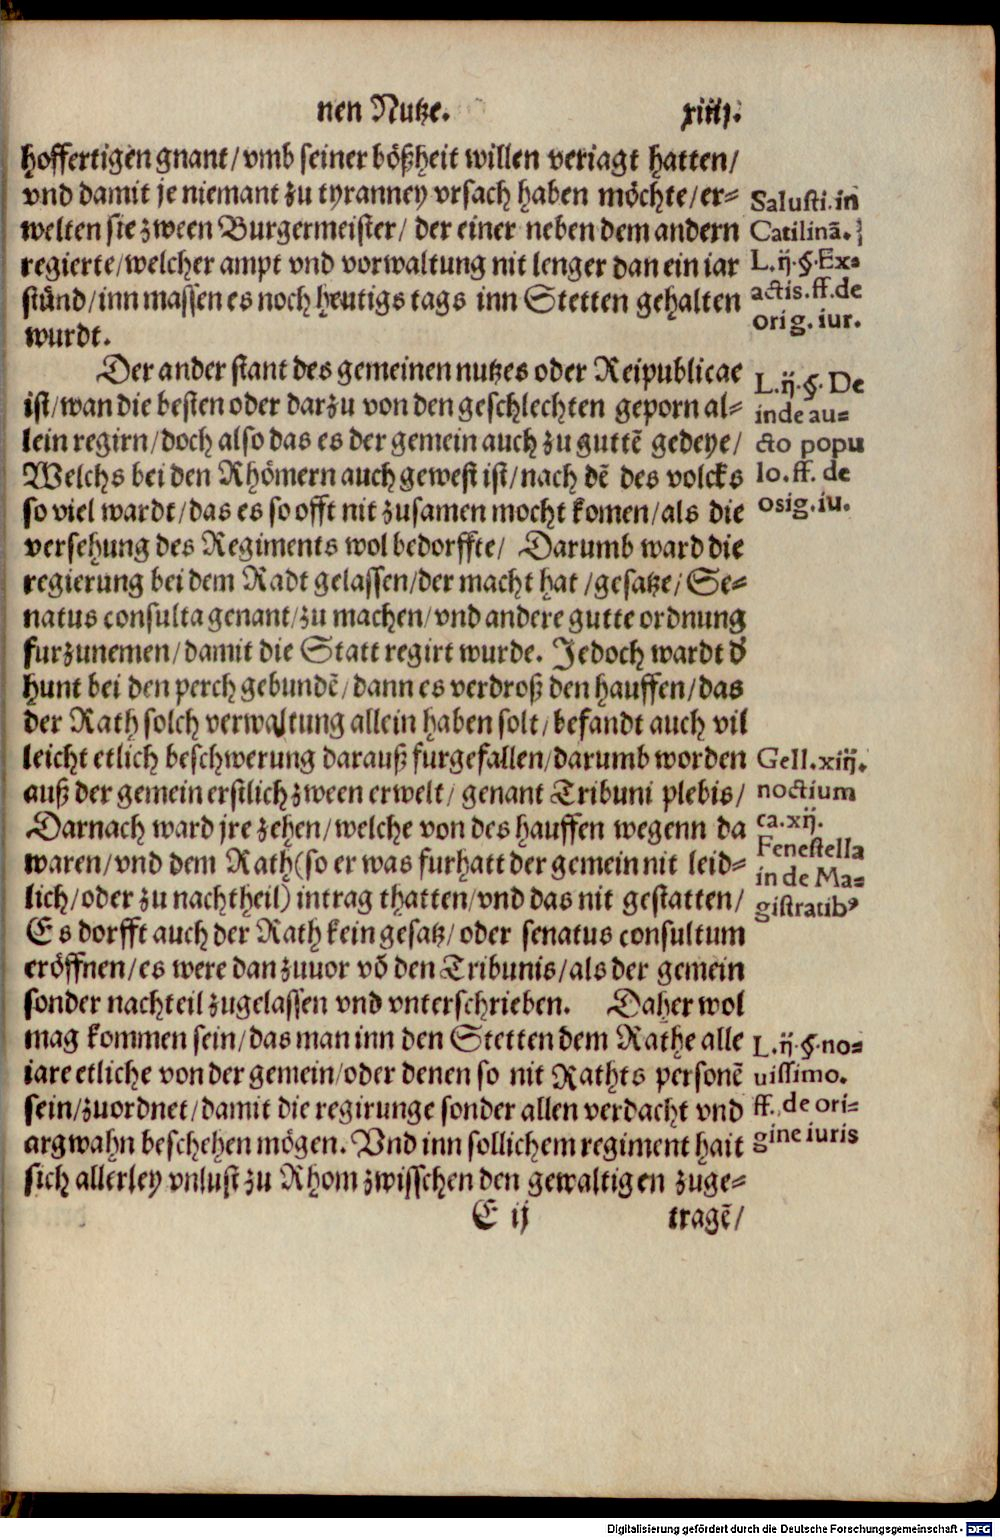 nen Nutze. xiiij.
hoffertigen gnant/vmb seiner bößheit willen veriagt hatten/
vnd damit je niemant zu tyranney vrsach haben möchte/er-
welten sie zween Burgermeister/ der einer neben dem andern
regierte/welcher ampt vnd vorwaltung nit lenger dan ein iar
stünd/inn massen es noch heutigs tags inn Stetten gehalten
wurdt.
Salusti. in
Catilinā.
L.ij.§.Ex-
actis.ff.de
orig. iur.
Der ander stant des gemeinen nutzes oder Reipublicae
ist/wan die besten oder darzu von den geschlechten geporn al-
lein regirn/doch also das es der gemein auch zu guttē gedeye/
Welchs bei den Rhömern auch gewest ist/nach dē des volcks
so viel wardt/das es so offt nit zusamen mocht komen/als die
versehung des Regiments wol bedorffte/ Darumb ward die
regierung bei dem Radt gelassen/der macht hat /gesatze/Se-
natus consulta genant/zu machen/vnd andere gutte ordnung
furzunemen/damit die Statt regirt wurde. Jedoch wardt d̓
hunt bei den perch gebundē/dann es verdroß den hauffen/das
der Rath solch verwaltung allein haben solt/befandt auch vil
leicht etlich beschwerung darauß furgefallen/darumb worden
auß der gemein erstlich zween erwelt/ genant Tribuni plebis/
Darnach ward jre zehen/welche von des hauffen wegenn da
waren/vnd dem Rath(so er was furhatt der gemein nit leid-
lich/oder zu nachtheil) intrag thatten/vnd das nit gestatten/
Es dorfft auch der Rath kein gesatz/oder senatus consultum
eröffnen/es were dan zuuor vō den Tribunis/als der gemein
sonder nachteil zugelassen vnd vnterschrieben. Daher wol
mag kommen sein/das man inn den Stetten dem Rathe alle
iare etliche von der gemein/oder denen so nit Rathts personē
sein/zuordnet/damit die regirunge sonder allen verdacht vnd
argwahn beschehen mögen. Vnd inn sollichem regiment hait
sich allerley vnlust zu Rhom zwisschen den gewaltigen zuge-
L.ij.§. De
inde au-
cto popu
lo.ff. de
osig.iu.
Gell.xiij.
noctium
ca.xij.
Fenestella
in de Ma-
gistratibꝰ
L.ij.§.no-
uissimo.
ff. de ori-
gine iuris
E ij tragē/
Digitalisierung gefördert durch die Deutsche Forschungsgemeinschaft - DFG